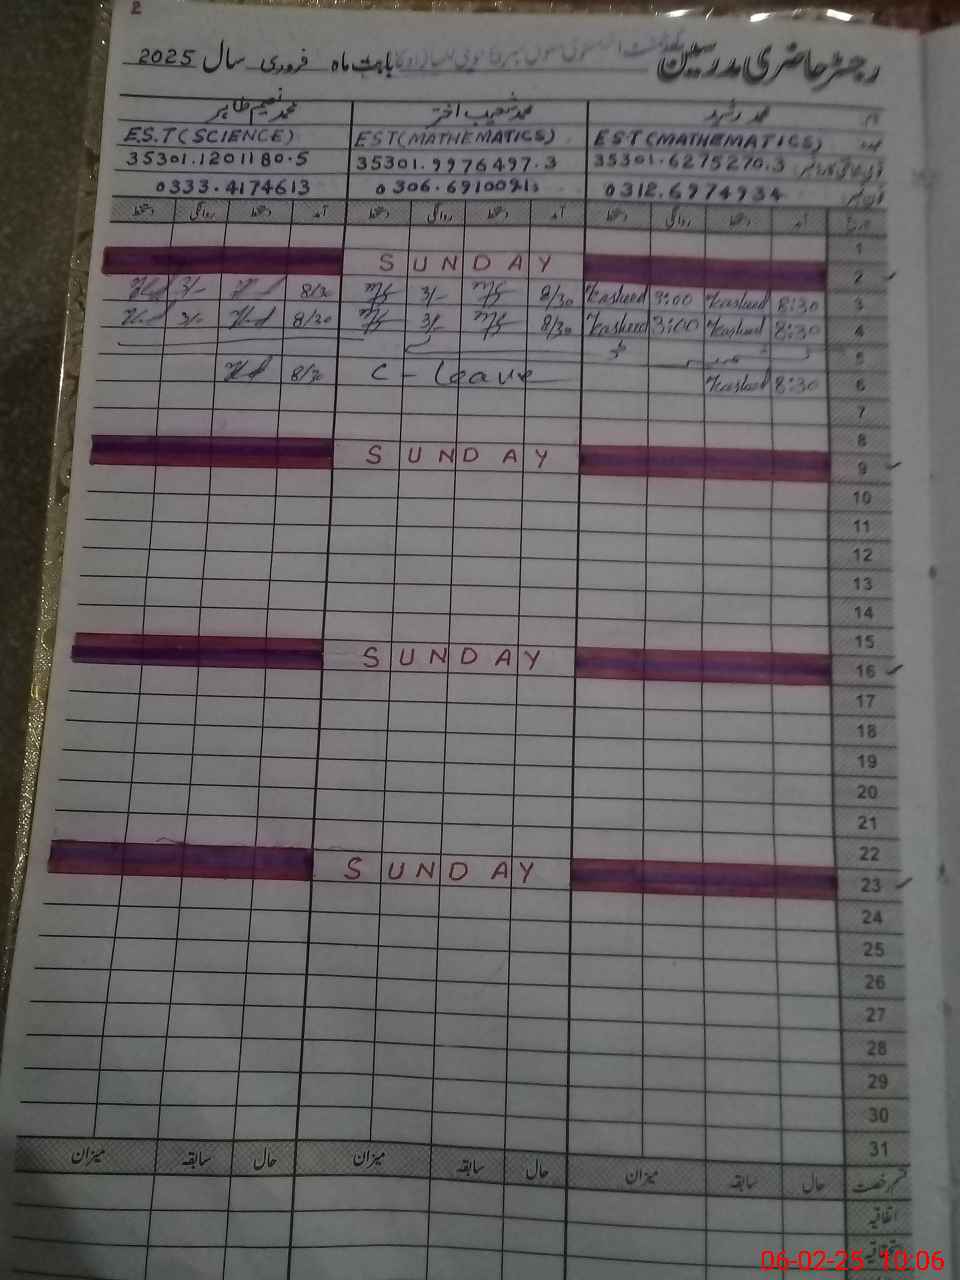 2
رجسٹر حاضری مدرسین
بابت ماہ فروری سال 2025
نام محمد رشید محمد شعیب اختر محمد نصیم طاہر
عہدہ EST (MATHEMATICS) EST (MATHEMATICS) E.S.T (SCIENCE)
35301.6275270.3 35301.9976497.3 35301.1201180.5
فون نمبر 0312.6974934 0306.691009 0333.4174613
تاریخ آمد دستخط روانگی دستخط آمد دستخط روانگی دستخط آمد دستخط روانگی دستخط
1
2 SUNDAY
3 8:30 Rasheed 3:00 Rasheed 8/30 3/- 8/30 3/-
4 8:30 Rasheed 3:00 Rasheed 8/30 3/- 8/30 3/-
5
6 8:30 Rasheed C - leave 8/30
7
8
9 SUNDAY
10
11
12
13
14
15
16 SUNDAY
17
18
19
20
21
22
23 SUNDAY
24
25
26
27
28
29
30
31
قسم رخصت حال سابقہ میزان حال سابقہ میزان حال سابقہ میزان
اتفاقیہ
06-02-25 10:06